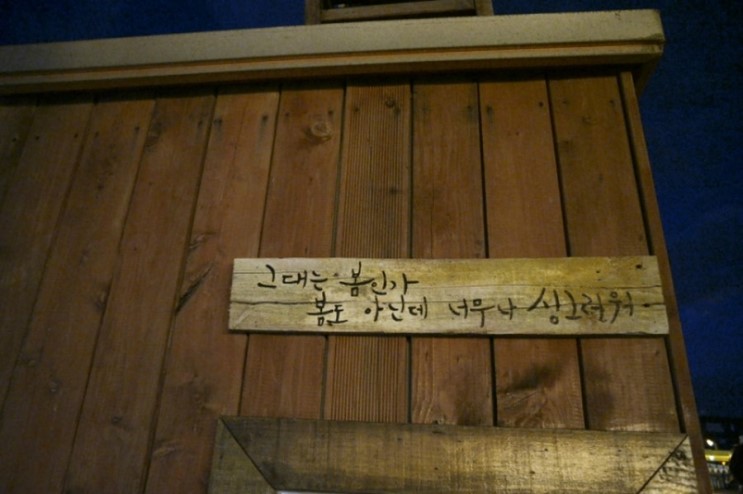 그대는 봄인가
봄도 아닌데 너무나 싱그러워